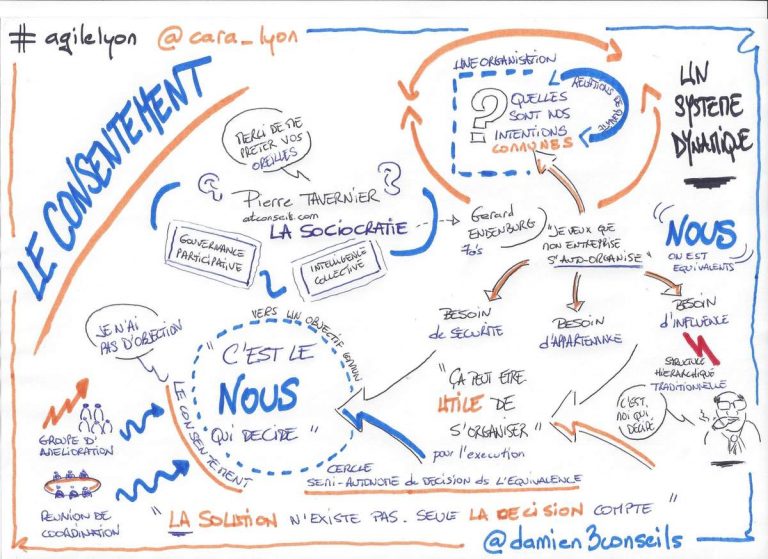 # agilelyon @cara_lyon
LE CONSENTEMENT
MERCI DE ME
PRÊTER VOS
OREILLES
Pierre TAVERNIER
atconseil.com
LA SOCIOCRATIE
GOUVERNANCE
PARTICIPATIVE
INTELLIGENCE
COLLECTIVE
UNE ORGANISATION
?
QUELLES
SONT NOS
INTENTIONS
COMMUNES
UN
SYSTEME
DYNAMIQUE
Gerard
ENDENBURG
70's
"JE VEUX QUE
MON ENTREPRISE
S'AUTO-ORGANISE"
"NOUS
ON EST
EQUIVALENTS"
BESOIN
de SECURITE
BESOIN
D'APPARTENANCE
BESOIN
d'INFLUENCE
STRUCTURE
HIERARCHIQUE
TRADITIONNELLE
C'EST
MOI QUI
DECIDE
JE N'AI
PAS D'OBJECTION
LE CONSENTEMENT
VERS UN OBJECTIF COMMUN
"C'EST LE
NOUS
QUI DECIDE"
"ÇA PEUT ETRE
UTILE DE
S'ORGANISER"
pour l'execution
GROUPE D'
AMELIORATION
REUNION DE
COORDINATION
CERCLE
SEMI-AUTONOME de DECISION ds L'EQUIVALENCE
"LA SOLUTION N'EXISTE PAS. SEULE LA DECISION COMPTE"
@damien3conseils